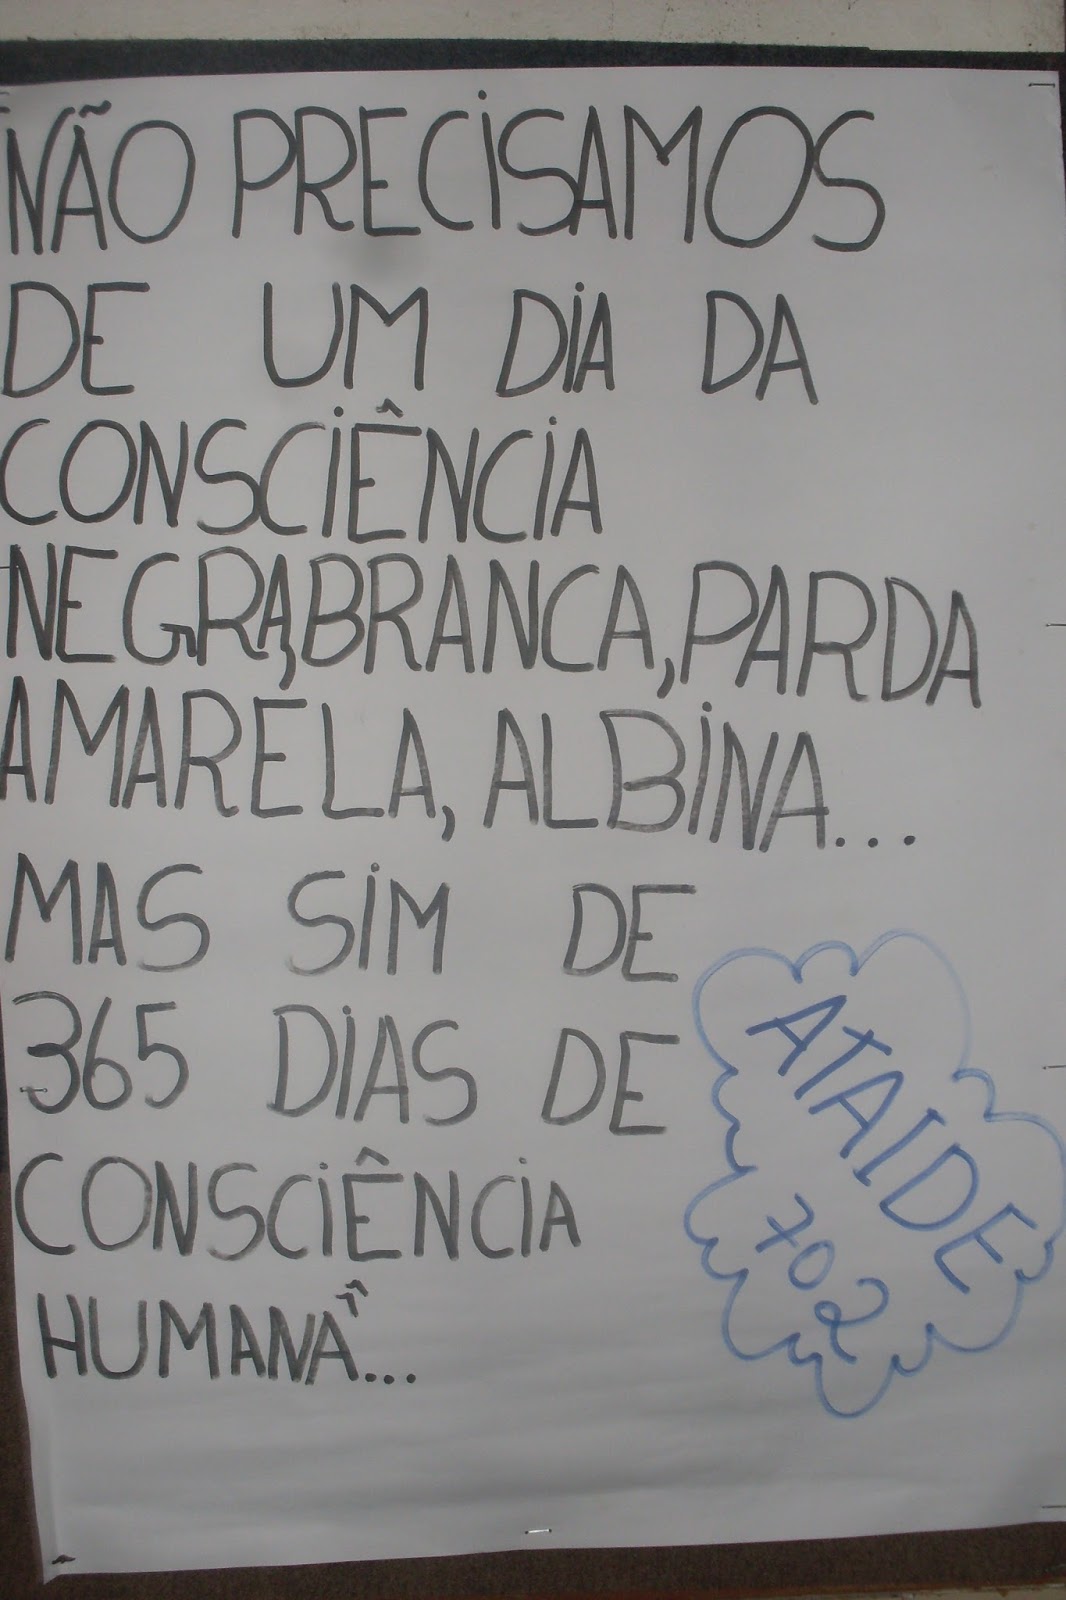 "NÃO PRECISAMOS
DE UM DIA DA
CONSCIÊNCIA
NEGRA, BRANCA, PARDA
AMARELA, ALBINA...
MAS SIM DE
365 DIAS DE
CONSCIÊNCIA
HUMANA"...
ATAIDE
702